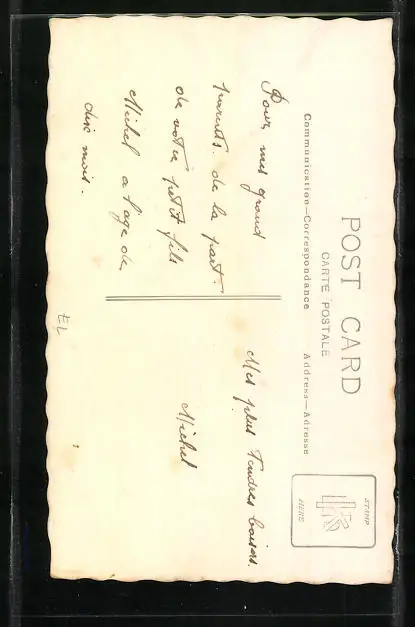 POST CARD
CARTE POSTALE
Communication—Correspondance
Address—Adresse
STAMP
HERE
Pour mes grand
parents. de la part
de votre petit fils
Michel a l'age de
dix mois.
Mes plus Tendres baisers.
Michel